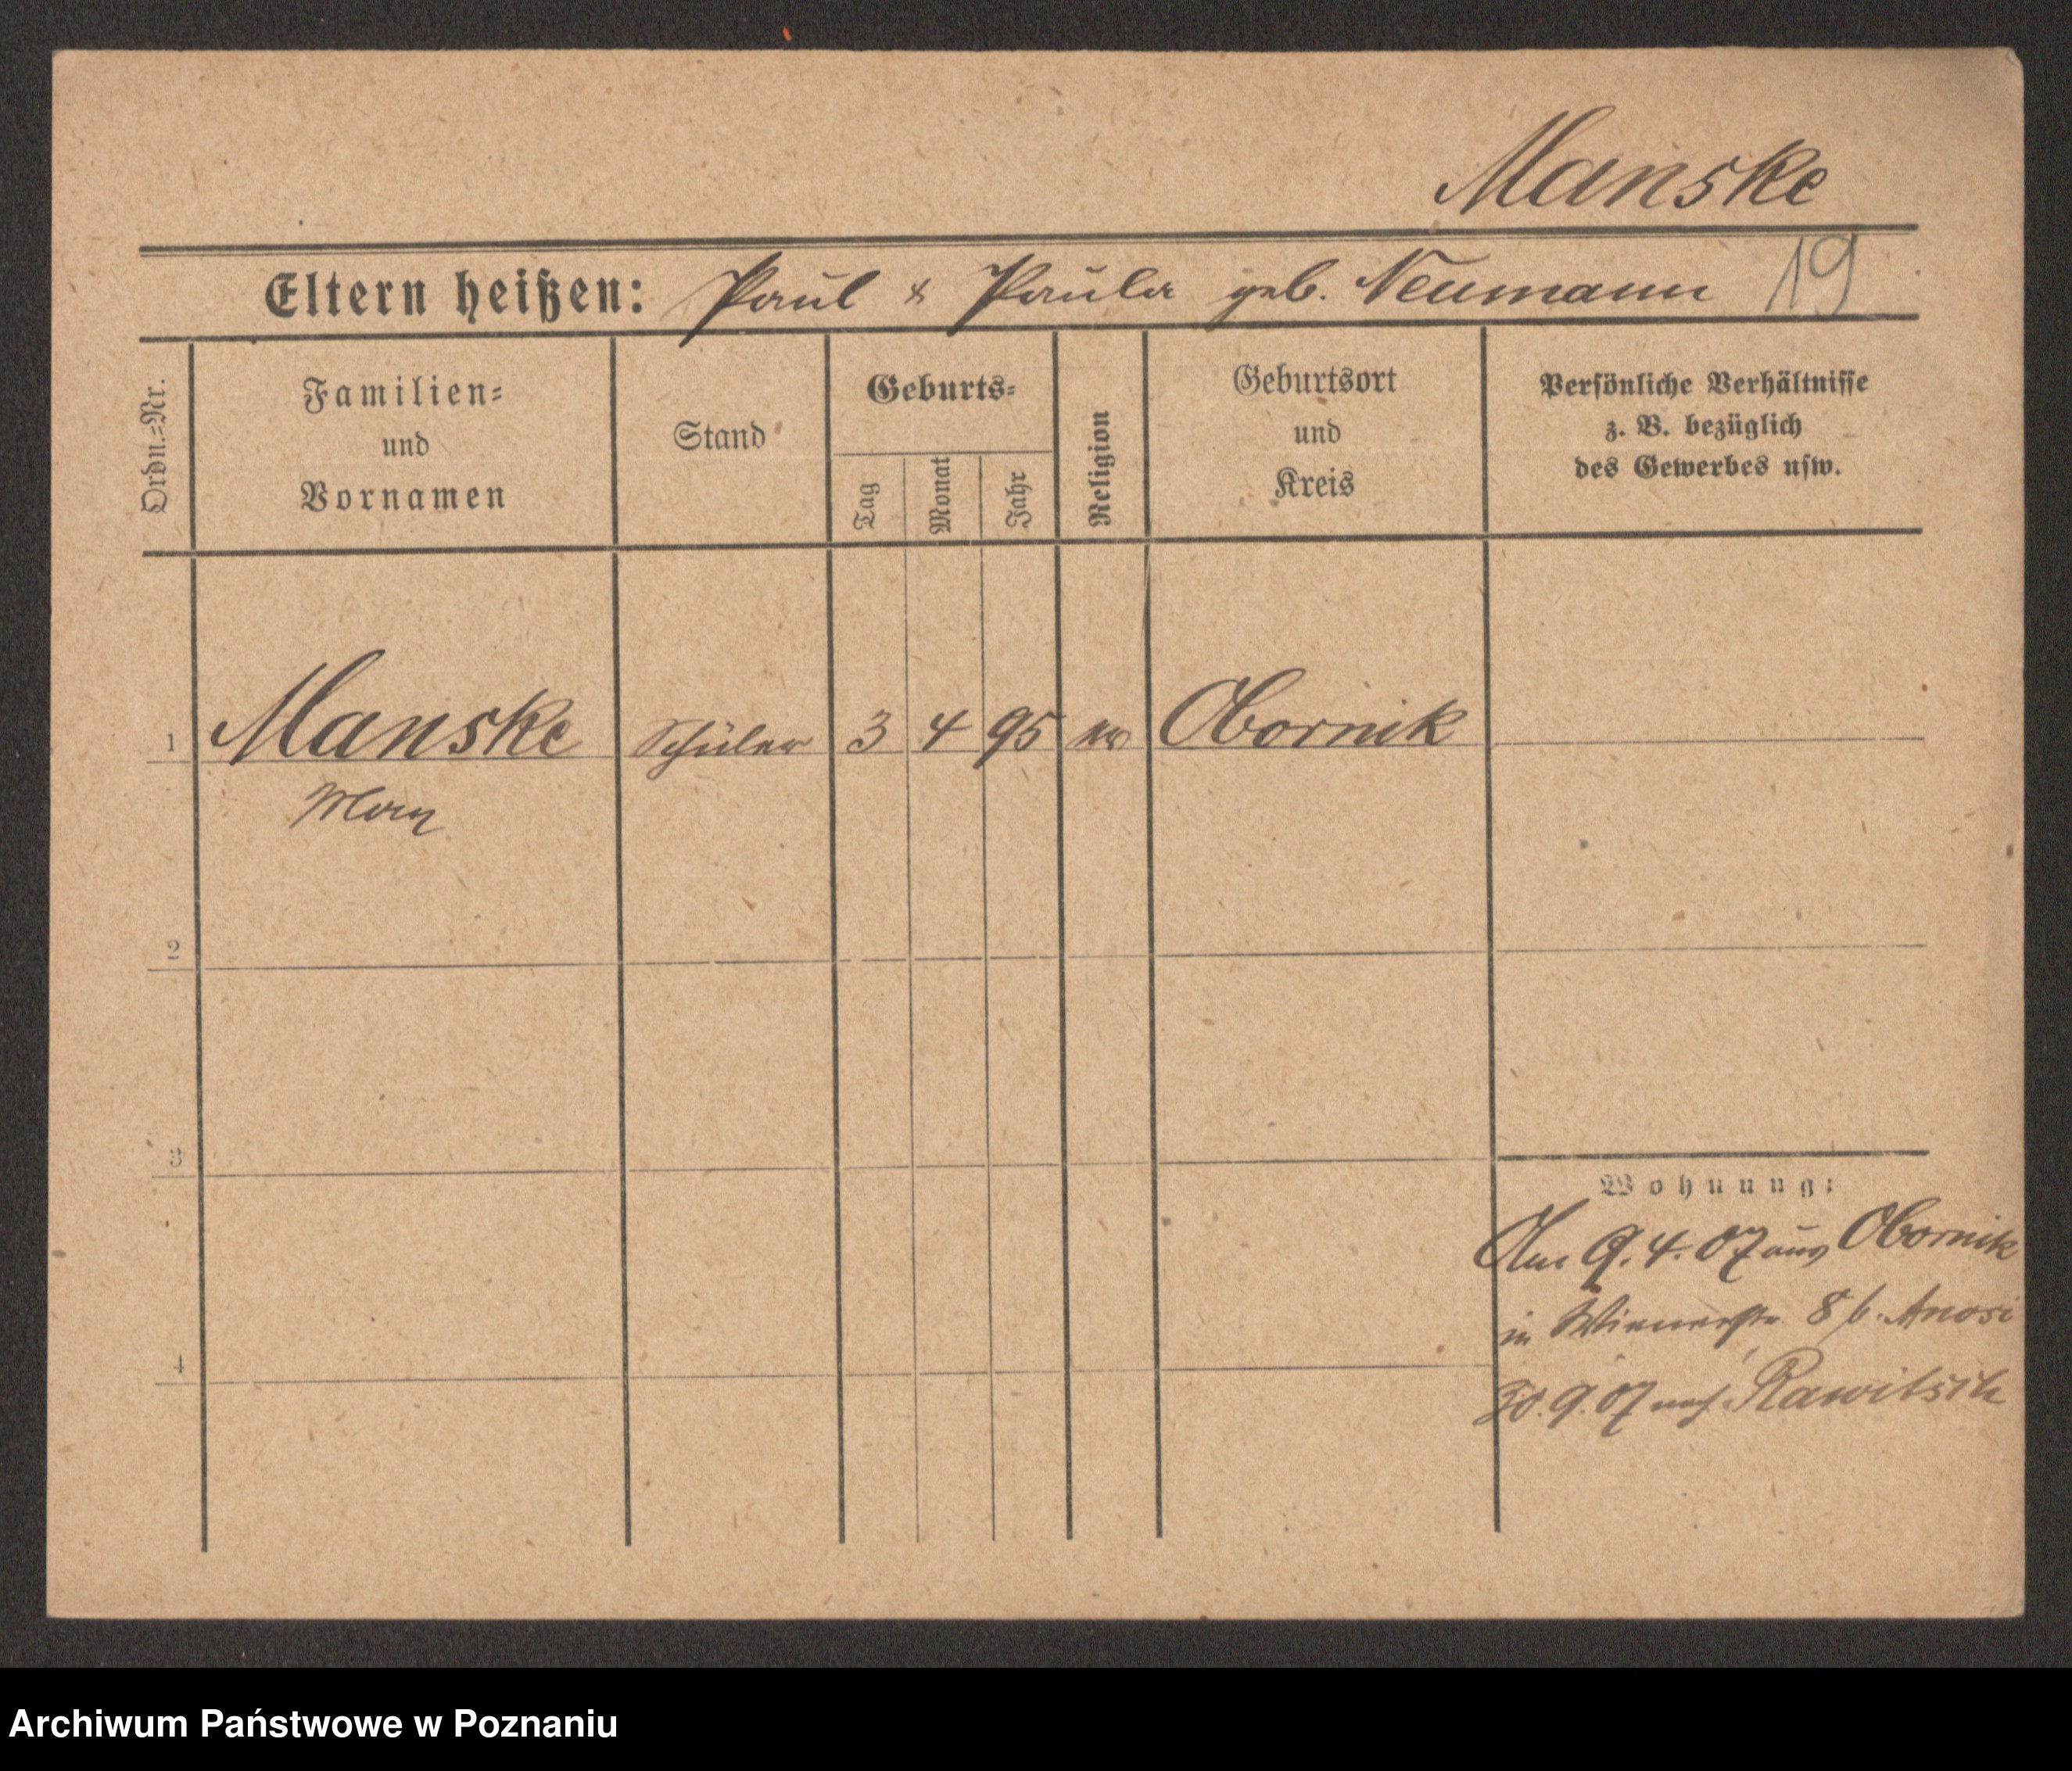 Manske
Eltern heißen: Paul & Paula geb. Neumann 19
Ordn.=Nr.
Familien=
und
Vornamen
Stand
Geburts=
Tag
Monat
Jahr
Religion
Geburtsort
und
Kreis
Persönliche Verhältnisse
z. B. bezüglich
des Gewerbes usw.
1 Manske Schüler 3 4 95 Obornik
Max
2
3
4
Wohnung:
Am 9.4.07 aus Obornik
in Wienerstr 8 b.
30.9.07 nach Rawitsch
Archiwum Państwowe w Poznaniu